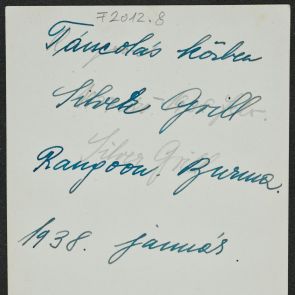 F2012.8
Táncolás közben
Silver Grill
Rangoon, Burma.
1938. január